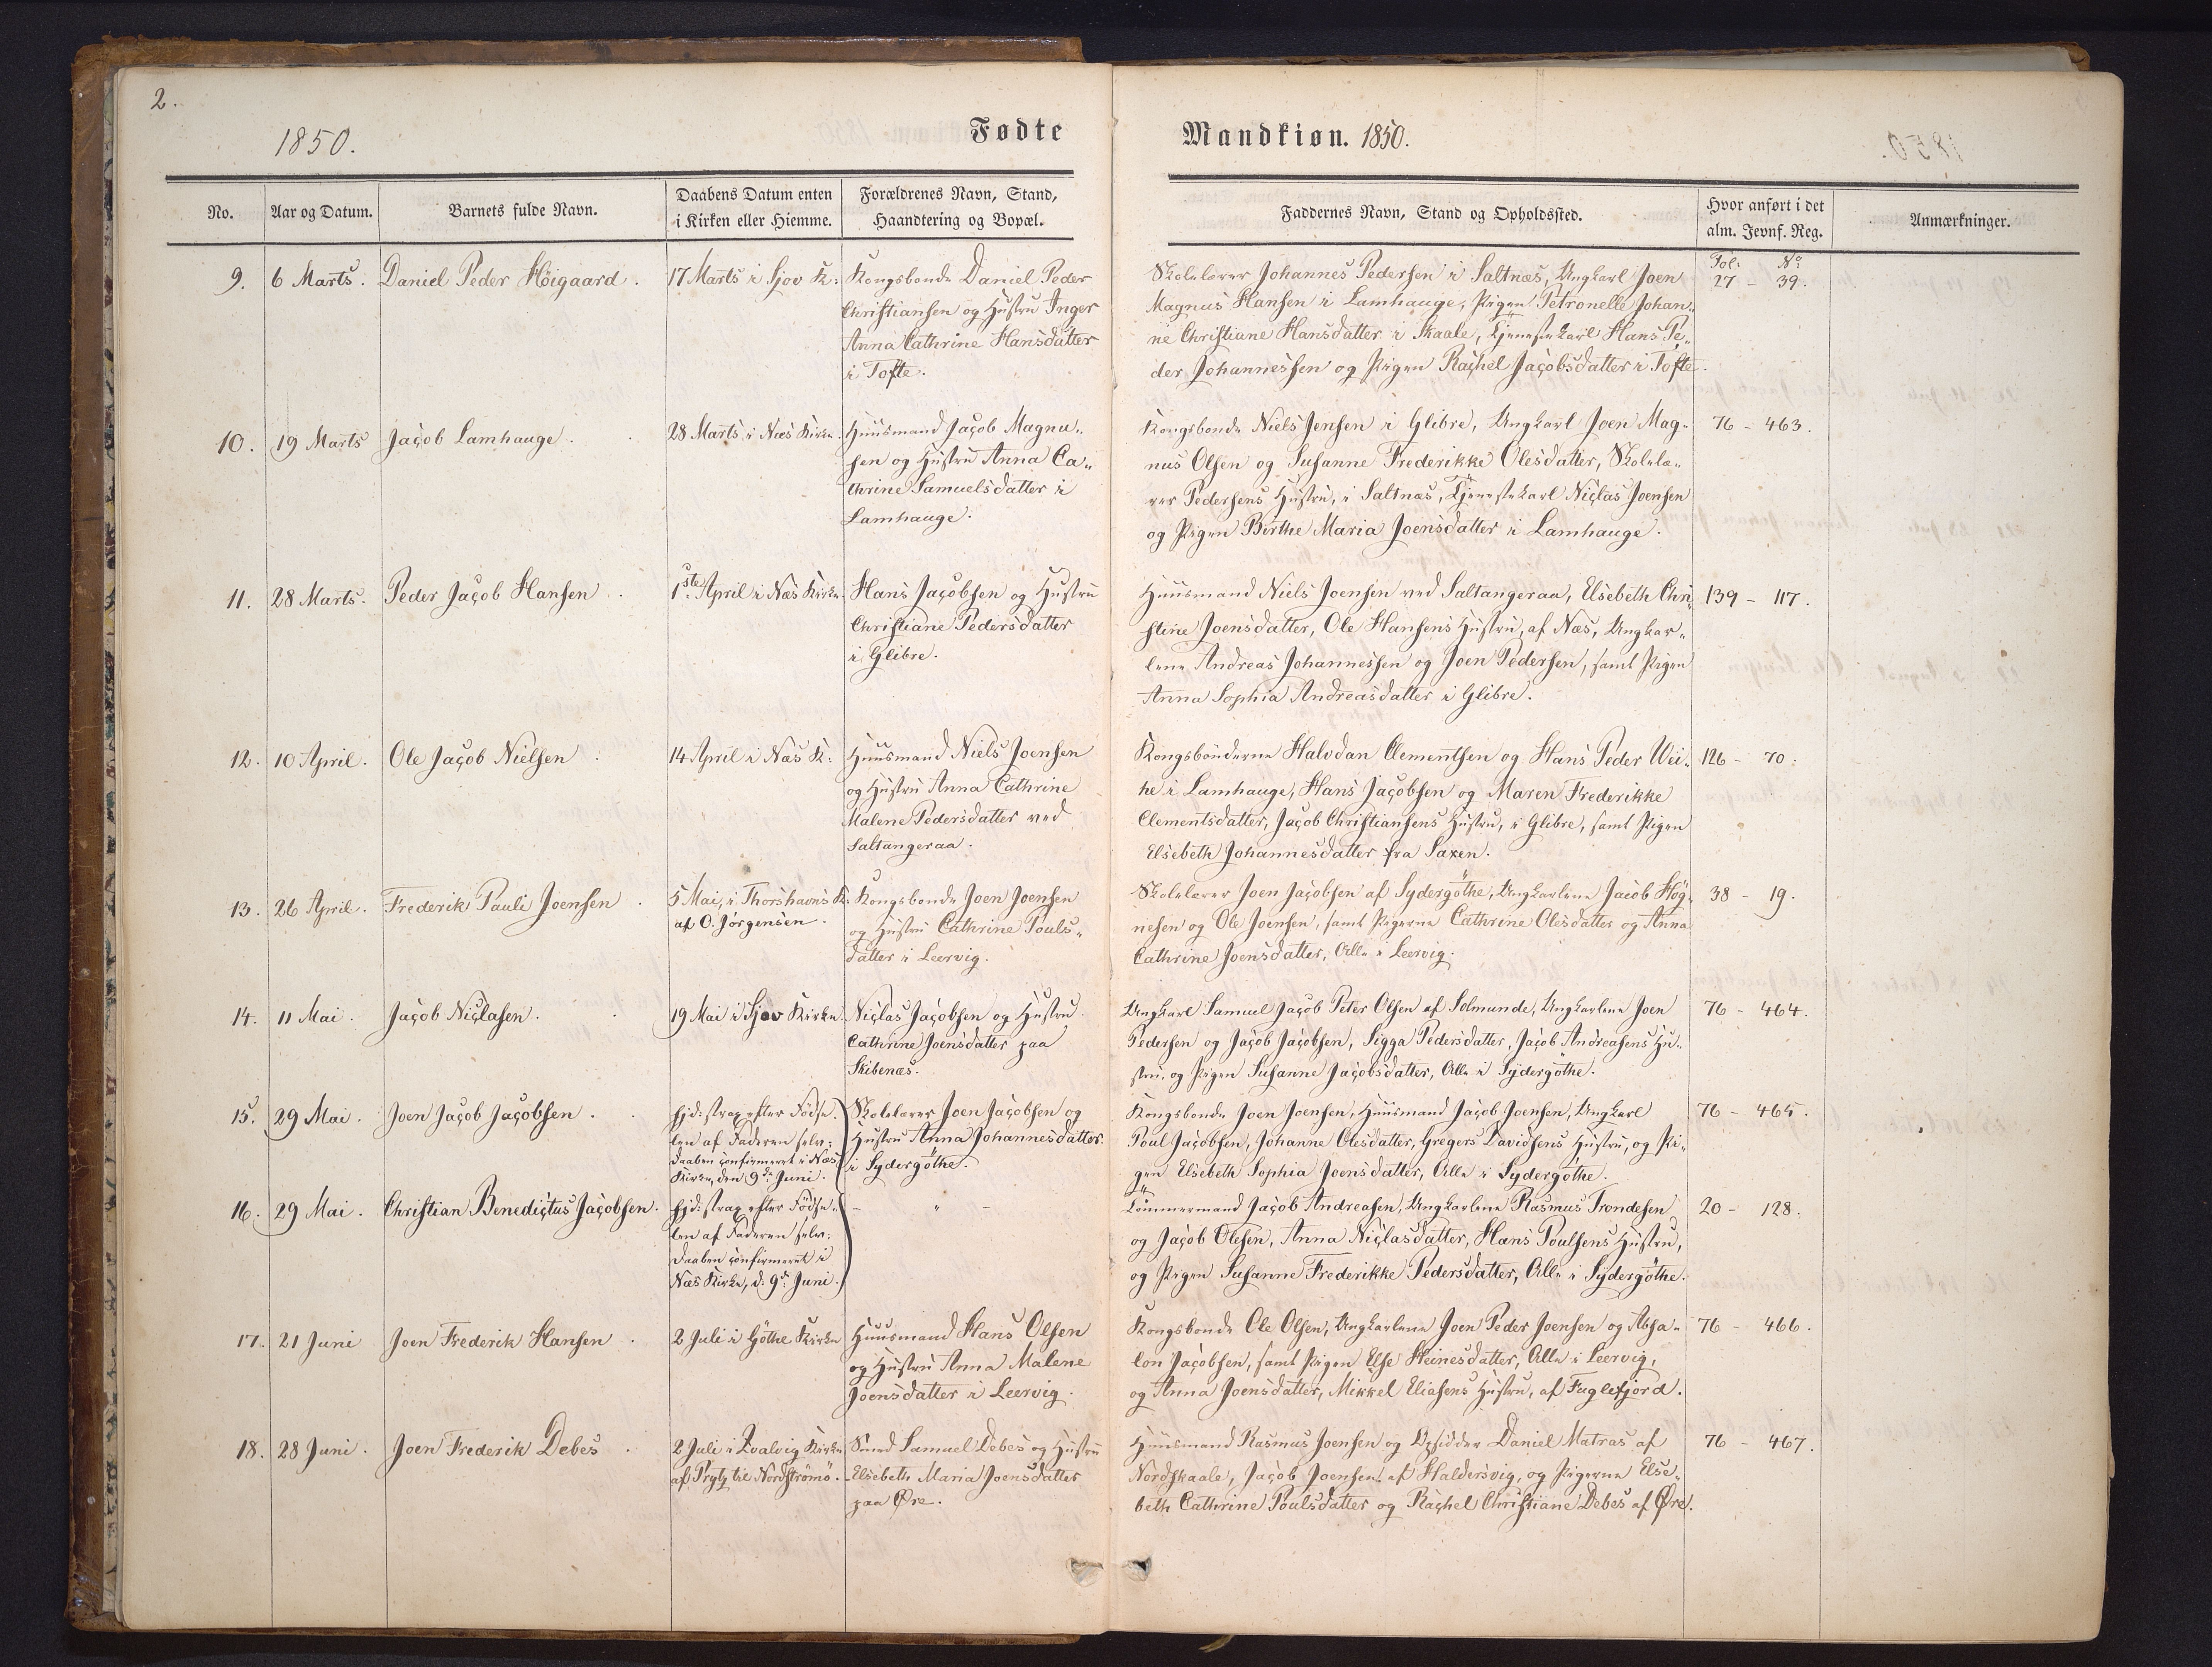 2.
1850.
Fødte
Mandkiøn. 1850.
No.
Aar og Datum.
Barnets fulde Navn.
Daabens Datum enten
i Kirken eller Hiemme.
Forældrenes Navn, Stand,
Haandtering og Bopæl.
Faddernes Navn, Stand og Opholdssted.
Hvor anført i det
alm. Jevnf. Reg.
Anmærkninger.
9.
6 Marts.
Daniel Peder Höigaard.
17 Marts i Sjov K:
Kongsbonde Daniel Peder
Christiansen og Hustru Inger
Anna Cathrine Hansdatter
i Tofte.
Skolelærer Johannes Pedersen i Saltnæs, Ungkarl Joen
Magnus Hansen i Lamhauge, Pigen Petronelle Johan-
ne Christiane Hansdatter i Skaale, Tjenestekarl Hans Pe-
der Johannessen og Pigen Rachel Jacobsdatter i Tofte.
Fol: No
27 - 39.
10.
19 Marts
Jacob Lamhauge.
28 Marts i Næs Kirke.
Huusmand Jacob Magnu-
sen og Hustru Anna Ca-
thrine Samuelsdatter i
Lamhauge.
Kongsbonde Niels Jensen i Glibre, Ungkarl Joen Mag-
nus Olsen og Susanne Frederikke Olesdatter, Skolelæ-
rer Pedersens Hustru, i Saltnæs, Tjenestekarl Niclas Joensen
og Pigen Birthe Maria Joensdatter i Lamhauge.
76 - 463.
11.
28 Marts.
Peder Jacob Hansen
1ste April i Næs Kirke.
Hans Jacobsen og Hustru
Christiane Pedersdatter
i Glibre.
Huusmand Niels Joensen ved Saltangeraa, Elsebeth Chri-
stine Joensdatter, Ole Hansens Hustru, af Næs, Ungkar-
lene Andreas Johannessen og Joen Pedersen, samt Pigen
Anna Sophia Andreasdatter i Glibre.
139 - 117.
12.
10 April.
Ole Jacob Nielsen
14 April i Næs K:
Huusmand Niels Joensen
og Hustru Anna Cathrine
Malene Pedersdatter ved
Saltangeraa.
Kongsbønderne Halvdan Clementsen og Hans Peder Wei-
he i Lamhauge, Hans Jacobsen og Maren Frederikke
Clementsdatter, Jacob Christiansens Hustru, i Glibre, samt Pigen
Elsebeth Johannesdatter fra Saxen.
126 - 70.
13.
26 April.
Frederik Pauli Joensen
5 Mai, i Thorshavns K:
af O. Jørgensen.
Kongsbonde Joen Joensen
og Hustru Cathrine Pouls-
datter i Leervig.
Skolelærer Joen Jacobsen af Sydergöthe, Ungkarlene Jacob Hög-
nesen og Ole Joensen, samt Pigerne Cathrine Olesdatter og Anna
Cathrine Joensdatter, Alle i Leervig.
38 - 19.
14.
11 Mai.
Jacob Niclasen.
19 Mai i Sjov Kirke.
Niclas Jacobsen og Hustru
Cathrine Joensdatter paa
Skibenæs.
Ungkarl Samuel Jacob Peter Olsen af Solmunde, Ungkarlene Joen
Pedersen og Jacob Jacobsen, Sigga Pedersdatter, Jacob Andreasens Hu-
stru, og Pigen Susanne Jacobsdatter, Alle i Sydergöthe.
76 - 464.
15.
29 Mai.
Joen Jacob Jacobsen.
Hjd: strax efter Födse-
len af Faderen selv;
Daaben confirmeret i Næs
Kirke, den 9de Juni.
Skolelærer Joen Jacobsen og
Hustru Anna Johannesdatter
i Sydergöthe.
Kongsbonde Joen Joensen, Huusmand Jacob Joensen, Ungkarl
Poul Jacobsen, Johanne Olesdatter, Gregers Davidsens Hustru, og Pi-
gen Elsebeth Sophia Joensdatter, Alle i Sydergöthe.
76 - 465.
16.
29 Mai.
Christian Benedictus Jacobsen.
Hjd: strax efter Födse-
len af Faderen selv;
Daaben confirmeret i
Næs Kirke, d: 9de Juni.
- " -
Tömmermand Jacob Andreasen, Ungkarlene Rasmus Trondesen
og Jacob Olesen, Anna Niclasdatter, Hans Poulsens Hustru,
og Pigen Susanne Frederikke Pedersdatter, Alle i Sydergöthe.
20 - 128.
17.
21 Juni
Joen Frederik Hansen
2 Juli i Göthe Kirke
Huusmand Hans Olsen
og Hustru Anna Malene
Joensdatter i Leervig.
Kongsbonde Ole Olsen, Ungkarlene Joen Peder Joensen og Absa-
lon Jacobsen, samt Pigen Else Heinesdatter, Alle i Leervig,
og Anna Joensdatter, Mikkel Eliasens Hustru, af Fuglefjord.
76 - 466.
18.
28 Juni.
Joen Frederik Debes
2 Juli i Qvalvig Kirke
af Prytz til Nordströmö.
Smed Samuel Debes og Hustru
Elsebeth Maria Joensdatter
paa Øre.
Huusmand Rasmus Joensen og Opsidder Daniel Matras af
Nordskaale, Jacob Joensen af Haldersvig, og Pigerne Else-
beth Cathrine Poulsdatter og Rachel Christiane Debes af Øre.
76 - 467.